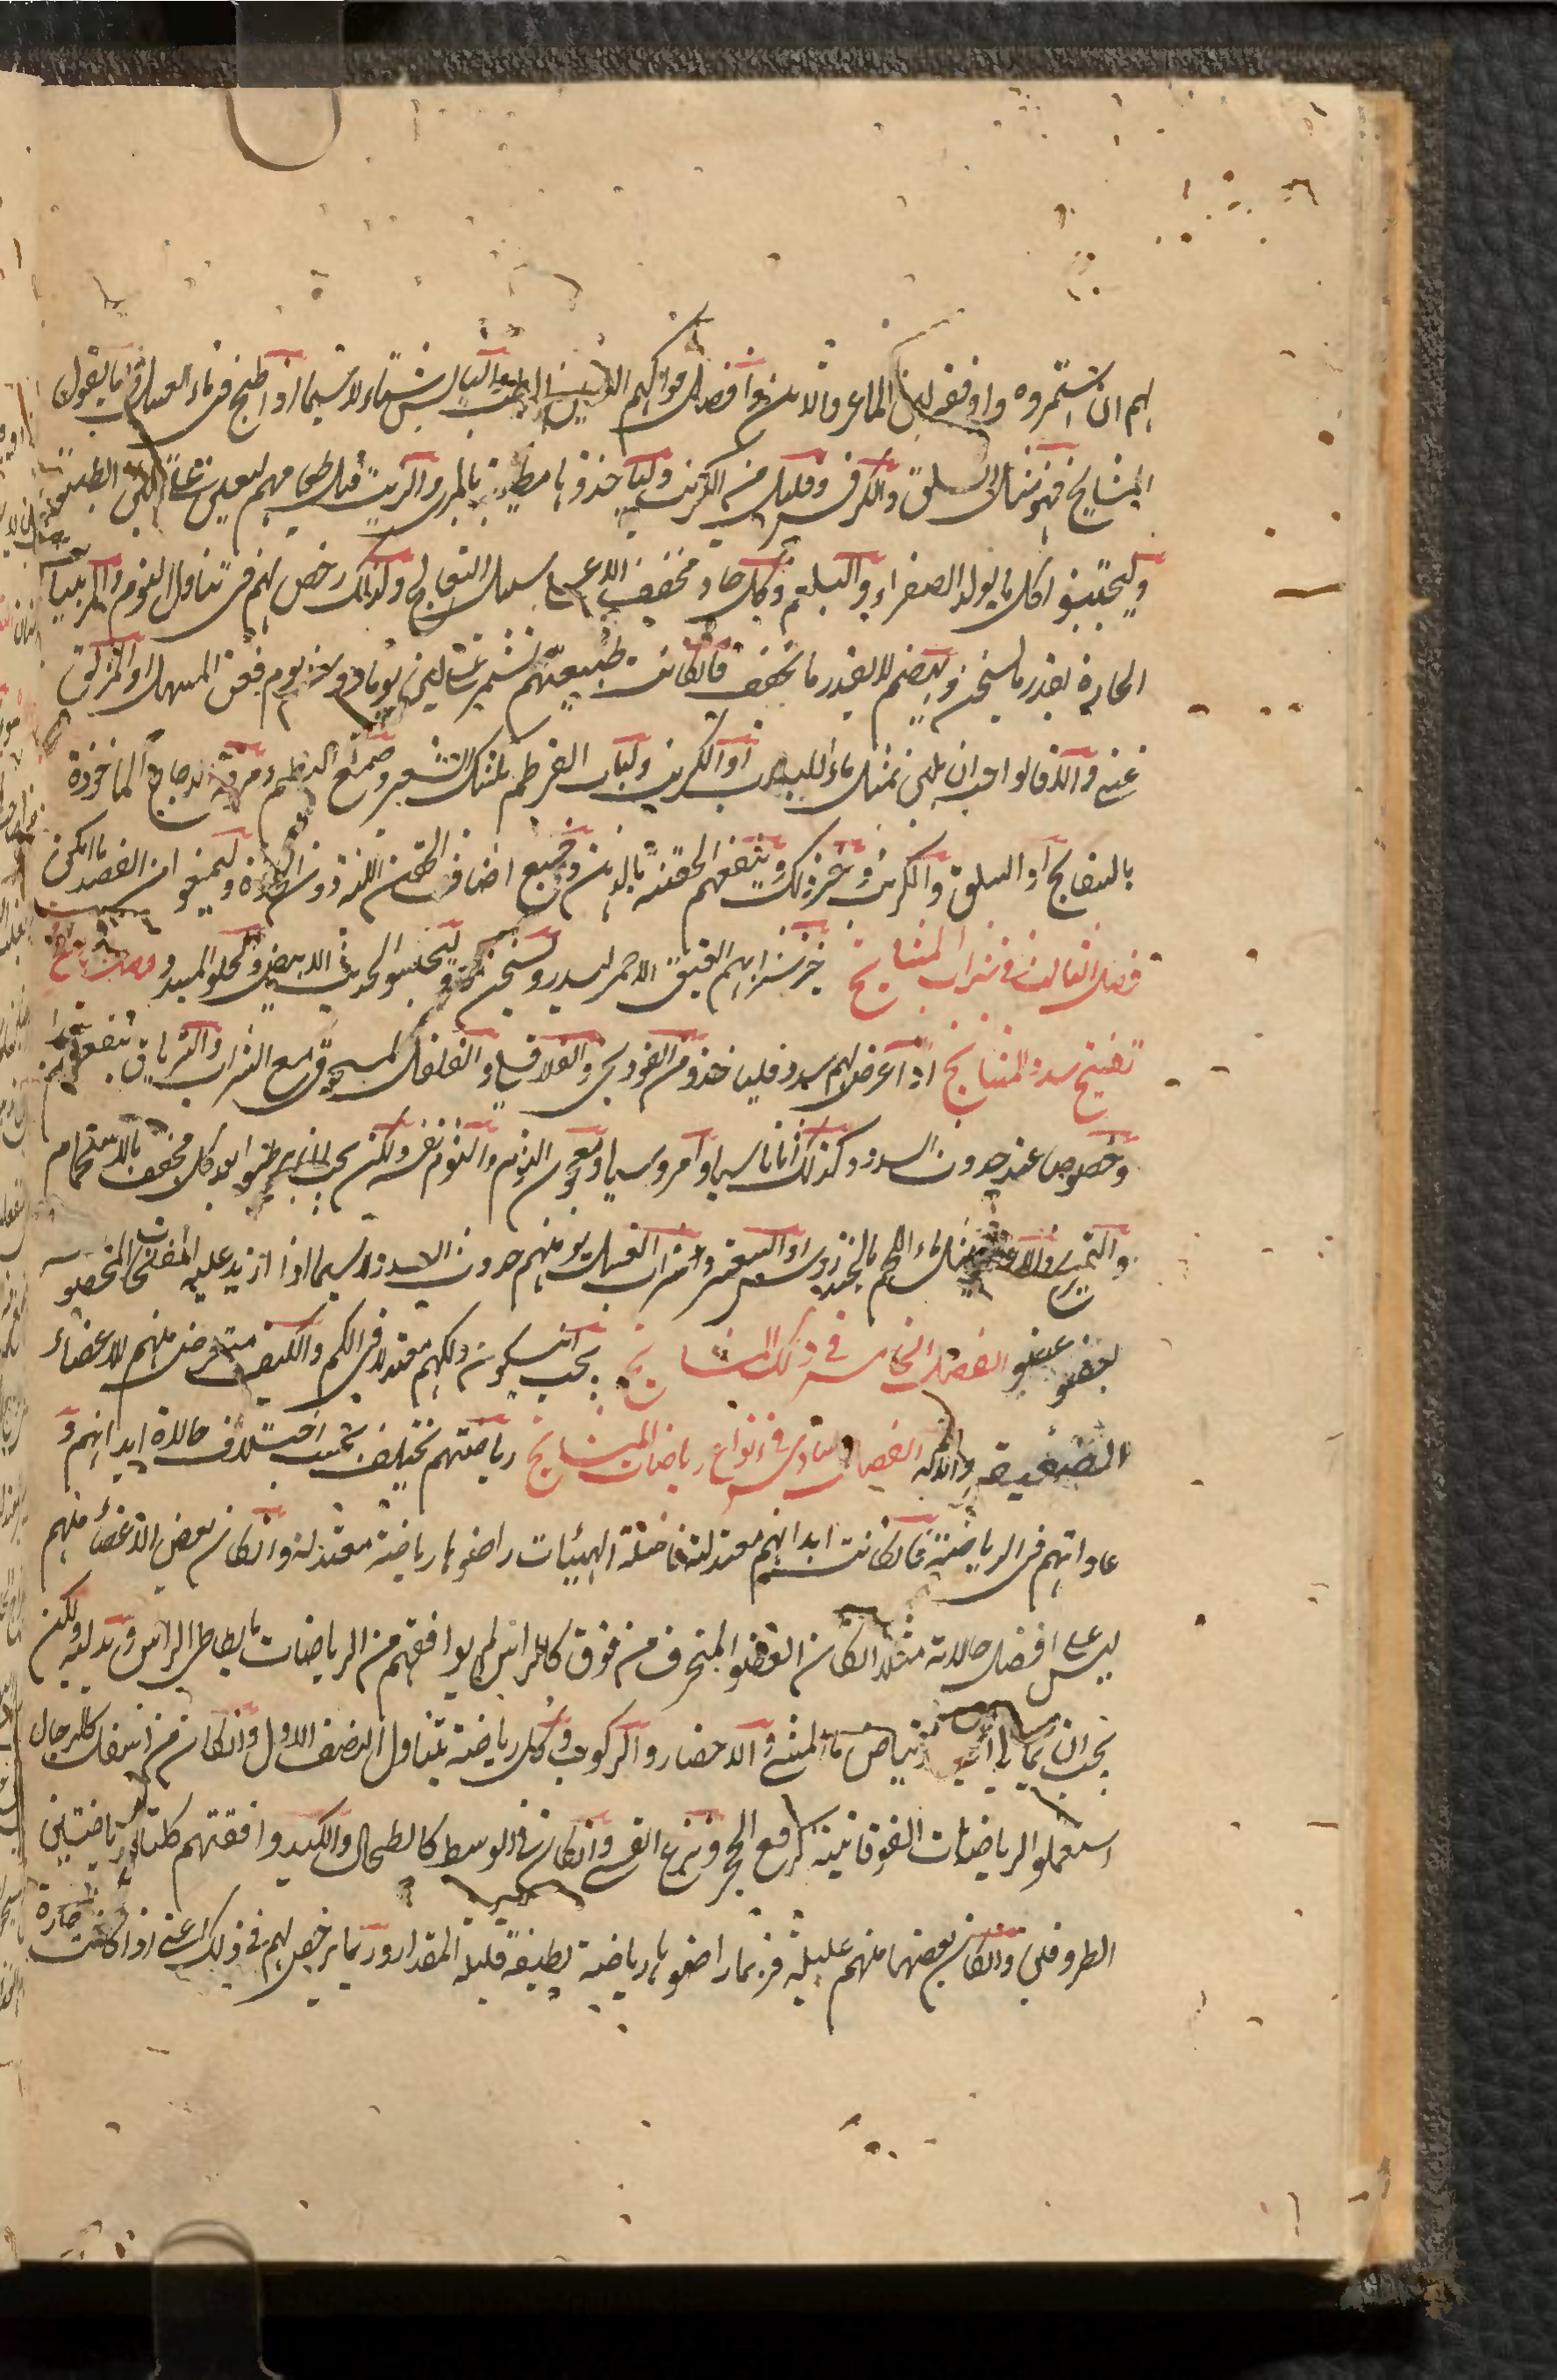 لهم ان استمروه واوفقه لبن الماعز والاتن وافضل فواكهم التين الرطب واليابس شتاء لا سيما اذا طبخ فى ماء العسل واما بقول
المشايخ فهو مثل السلق والكرفس وقليل من الكراث ولياخذوها مطيبة بالمرى والزيت قبل طعامهم ليعين على تليين الطبيعة
وليجتنبوا كل ما يولد الصفراء والبلغم وكل حاد مخفف الا على سبيل التعالج ولذلك رخص لهم فى تناول الثوم والمربيات
الحارة بقدر ما يسخن ويهضم لا بقدر ما يجفف فان كانت طبيعتهم تستمر على لين يوما دون يوم فعن المسهل او المزلق
غنى والذ قالوا يجب ان يلين بمثل ماء اللبلاب او الكرنب ولباب القرطم بكشك الشعير وصمغ البطم ومرقة الدجاج الماخوذة
بالبسفايج او السلق والكرنب وغير ذلك وينفعهم الحقنة بالدهن وجميع اصناف الحقن اللذذة دون الحادة وليمنعوا من الفصد ما امكن
فصل الثالث فى شراب المشايخ خير شرابهم العتيق الاحمر ليدر ويسخن معا وليجتنبوا الحديث الابيض والحلو المسدد فصل رابع فى
تفتيح سدد المشايخ اذا عرض لهم سدد فلياخذوا من الفودنجى والفلافلى والفلفل المسحوق مع الشراب والترياق ينفعهم جدا
وخصوصا عند حدوث السدد وكذلك اثاناسيا وامروسيا ومعجون الثوم والثوم نفسه ولكن يجب ان يرطبوا بعد كل مجفف بالاستحمام
والتمريخ والاغذية مثل ماء اللحم بالخندروس او الشعير وشراب العسل يؤمنهم حدوث السدد لا سيما اذا ازيد عليه المفتحات المخصوصة
بعضو عضو الفصل الخامس فى دلك المشايخ يجب ان يكون دلكهم معتدلا فى الكم والكيف غير متعرض منهم للاعضاء
الضعيفة والمثانة الفصل السادس فى انواع رياضات المشايخ رياضتهم تختلف بحسب اختلاف حالاة ابدانهم و
عاداتهم فى الرياضة فان كانت ابدانهم معتدلة فاضلة الهيئات راضوها رياضة معتدلة وان كان بعض الاعضاء منهم
ليس على افضل حالاته مثلا ان كان العضو المنحرف من فوق كالراس لم يوافقهم من الرياضات ما يطاطى الراس ويدليه ولكن
يجب ان يمال الى الارتياض بالمشى والاحضار والركوب وكل رياضة تتناول النصف الاول وان كان من اسفل كالرجال
استعملوا الرياضات الفوقانية كرفع الحجر ونزع القسى وان كان فى الوسط كالطحال والكبد وافقتهم كلتا الرياضتين
الطرفين وان كان بعضها منهم عليلة فربما راضوها رياضة لطيفة قليلة المقدار وربما يرخص لهم فى ذلك اعنى اذا كانت حارة